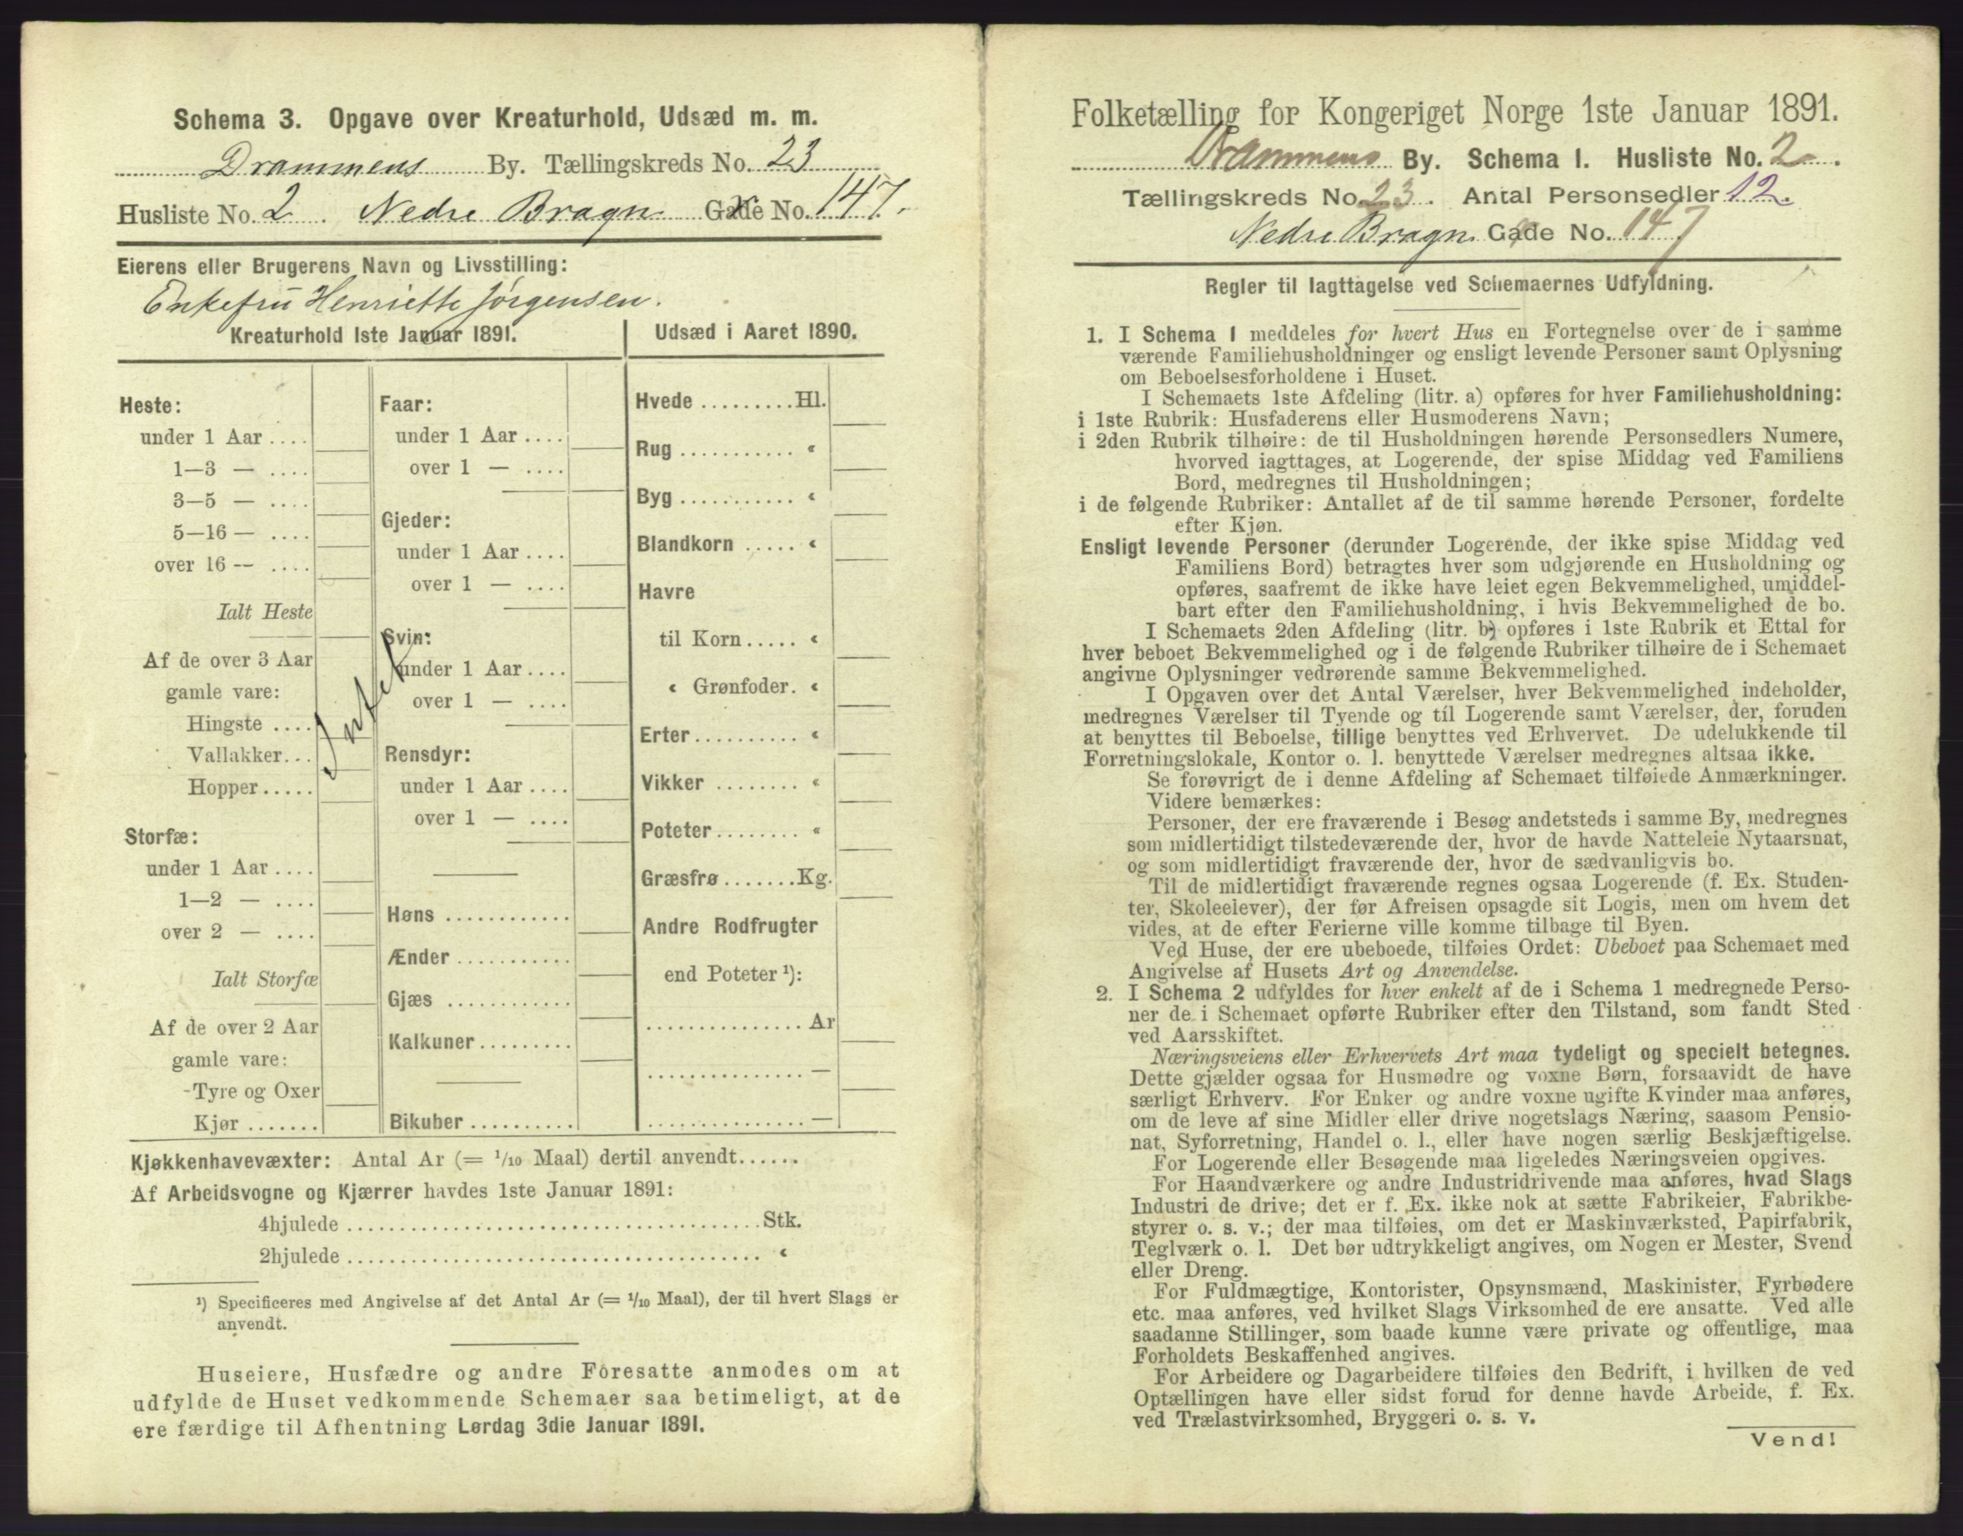 Schema 3. Opgave over Kreaturhold, Udsæd m. m.
Drammens By. Tællingskreds No. 23
Husliste No. 2. Nedre Bragn Gade No. 147.
Eierens eller Brugerens Navn og Livsstilling:
Enkefru Henriette Jørgensen.
Kreaturhold 1ste Januar 1891.
Heste:
under 1 Aar ....
1—3 — ....
3—5 — ....
5—16 — ....
over 16 — ....
Ialt Heste
Af de over 3 Aar
gamle vare:
Hingste ....
Vallakker...
Hopper.....
Storfæ:
under 1 Aar ....
1—2 — ....
over 2 — ....
Ialt Storfæ
Af de over 2 Aar
gamle vare:
Tyre og Oxer
Kjør .......
Intet
Faar:
under 1 Aar ....
over 1 — ....
Gjeder:
under 1 Aar ....
over 1 — ....
Svin:
under 1 Aar ....
over 1 — ....
Rensdyr:
under 1 Aar ....
over 1 — ....
Høns ............
Ænder ...........
Gjæs ............
Kalkuner.........
Bikuber ..........
Udsæd i Aaret 1890.
Hvede .........Hl.
Rug ........... «
Byg ........... «
Blandkorn ..... «
Havre
til Korn ..... «
« Grønfoder. «
Erter.......... «
Vikker ........ «
Poteter........ «
Græsfrø.......Kg.
Andre Rodfrugter
end Poteter ¹):
............... Ar
............... —
............... —
Kjøkkenhavevæxter: Antal Ar (= 1/10 Maal) dertil anvendt......
Af Arbeidsvogne og Kjærrer havdes 1ste Januar 1891:
4hjulede ........................................Stk.
2hjulede ........................................ «
¹) Specificeres med Angivelse af det Antal Ar (= 1/10 Maal), der til hvert Slags er
anvendt.
Huseiere, Husfædre og andre Foresatte anmodes om at
udfylde de Huset vedkommende Schemaer saa betimeligt, at de
ere færdige til Afhentning Lørdag 3die Januar 1891.
Folketælling for Kongeriget Norge 1ste Januar 1891.
Drammens By. Schema 1. Husliste No. 2.
Tællingskreds No. 23. Antal Personsedler 12.
Nedre Bragn Gade No. 147
Regler til Iagttagelse ved Schemaernes Udfyldning.
1. I Schema 1 meddeles for hvert Hus en Fortegnelse over de i samme
værende Familiehusholdninger og ensligt levende Personer samt Oplysning
om Beboelsesforholdene i Huset.
I Schemaets 1ste Afdeling (litr. a) opføres for hver Familiehusholdning:
i 1ste Rubrik: Husfaderens eller Husmoderens Navn;
i 2den Rubrik tilhøire: de til Husholdningen hørende Personsedlers Numere,
hvorved iagttages, at Logerende, der spise Middag ved Familiens
Bord, medregnes til Husholdningen;
i de følgende Rubriker: Antallet af de til samme hørende Personer, fordelte
efter Kjøn.
Ensligt levende Personer (derunder Logerende, der ikke spise Middag ved
Familiens Bord) betragtes hver som udgjørende en Husholdning og
opføres, saafremt de ikke have leiet egen Bekvemmelighed, umiddel-
bart efter den Familiehusholdning, i hvis Bekvemmelighed de bo.
I Schemaets 2den Afdeling (litr. b) opføres i 1ste Rubrik et Ettal for
hver beboet Bekvemmelighed og i de følgende Rubriker tilhøire de i Schemaet
angivne Oplysninger vedrørende samme Bekvemmelighed.
I Opgaven over det Antal Værelser, hver Bekvemmelighed indeholder,
medregnes Værelser til Tyende og til Logerende samt Værelser, der, foruden
at benyttes til Beboelse, tillige benyttes ved Erhvervet. De udelukkende til
Forretningslokale, Kontor o. l. benyttede Værelser medregnes altsaa ikke.
Se forøvrigt de i denne Afdeling af Schemaet tilføiede Anmærkninger.
Videre bemærkes:
Personer, der ere fraværende i Besøg andetsteds i samme By, medregnes
som midlertidigt tilstedeværende der, hvor de havde Natteleie Nytaarsnat,
og som midlertidigt fraværende der, hvor de sædvanligvis bo.
Til de midlertidigt fraværende regnes ogsaa Logerende (f. Ex. Studen-
ter, Skoleelever), der før Afreisen opsagde sit Logis, men om hvem det
vides, at de efter Ferierne ville komme tilbage til Byen.
Ved Huse, der ere ubeboede, tilføies Ordet: Ubeboet paa Schemaet med
Angivelse af Husets Art og Anvendelse.
2. I Schema 2 udfyldes for hver enkelt af de i Schema 1 medregnede Perso-
ner de i Schemaet opførte Rubriker efter den Tilstand, som fandt Sted
ved Aarsskiftet.
Næringsveiens eller Erhvervets Art maa tydeligt og specielt betegnes.
Dette gjælder ogsaa for Husmødre og voxne Børn, forsaavidt de have
særligt Erhverv. For Enker og andre voxne ugifte Kvinder maa anføres,
om de leve af sine Midler eller drive nogetslags Næring, saasom Pensio-
nat, Syforretning, Handel o. l., eller have nogen særlig Beskjæftigelse.
For Logerende eller Besøgende maa ligeledes Næringsveien opgives.
For Haandværkere og andre Industridrivende maa anføres, hvad Slags
Industri de drive; det er f. Ex. ikke nok at sætte Fabrikeier, Fabrikbe-
styrer o. s. v.; der maa tilføies, om det er Maskinværksted, Papirfabrik,
Teglværk o. l. Det bør udtrykkeligt angives, om Nogen er Mester, Svend
eller Dreng.
For Fuldmægtige, Kontorister, Opsynsmænd, Maskinister, Fyrbødere
etc. maa anføres, ved hvilket Slags Virksomhed de ere ansatte. Ved alle
saadanne Stillinger, som baade kunne være private og offentlige, maa
Forholdets Beskaffenhed angives.
For Arbeidere og Dagarbeidere tilføies den Bedrift, i hvilken de ved
Optællingen have eller sidst forud for denne havde Arbeide, f. Ex.
ved Trælastvirksomhed, Bryggeri o. s. v.
Vend!